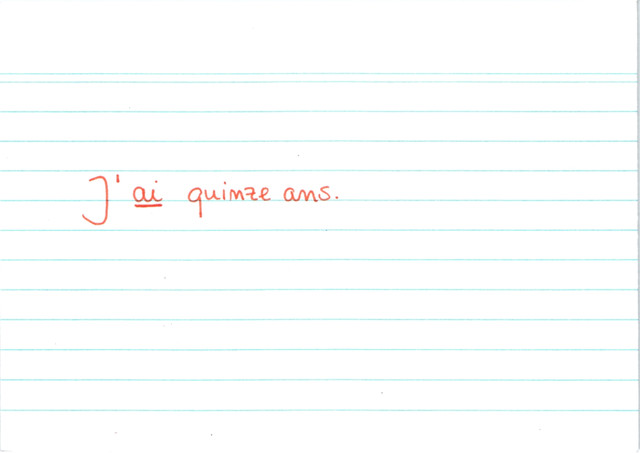 J'ai quinze ans.